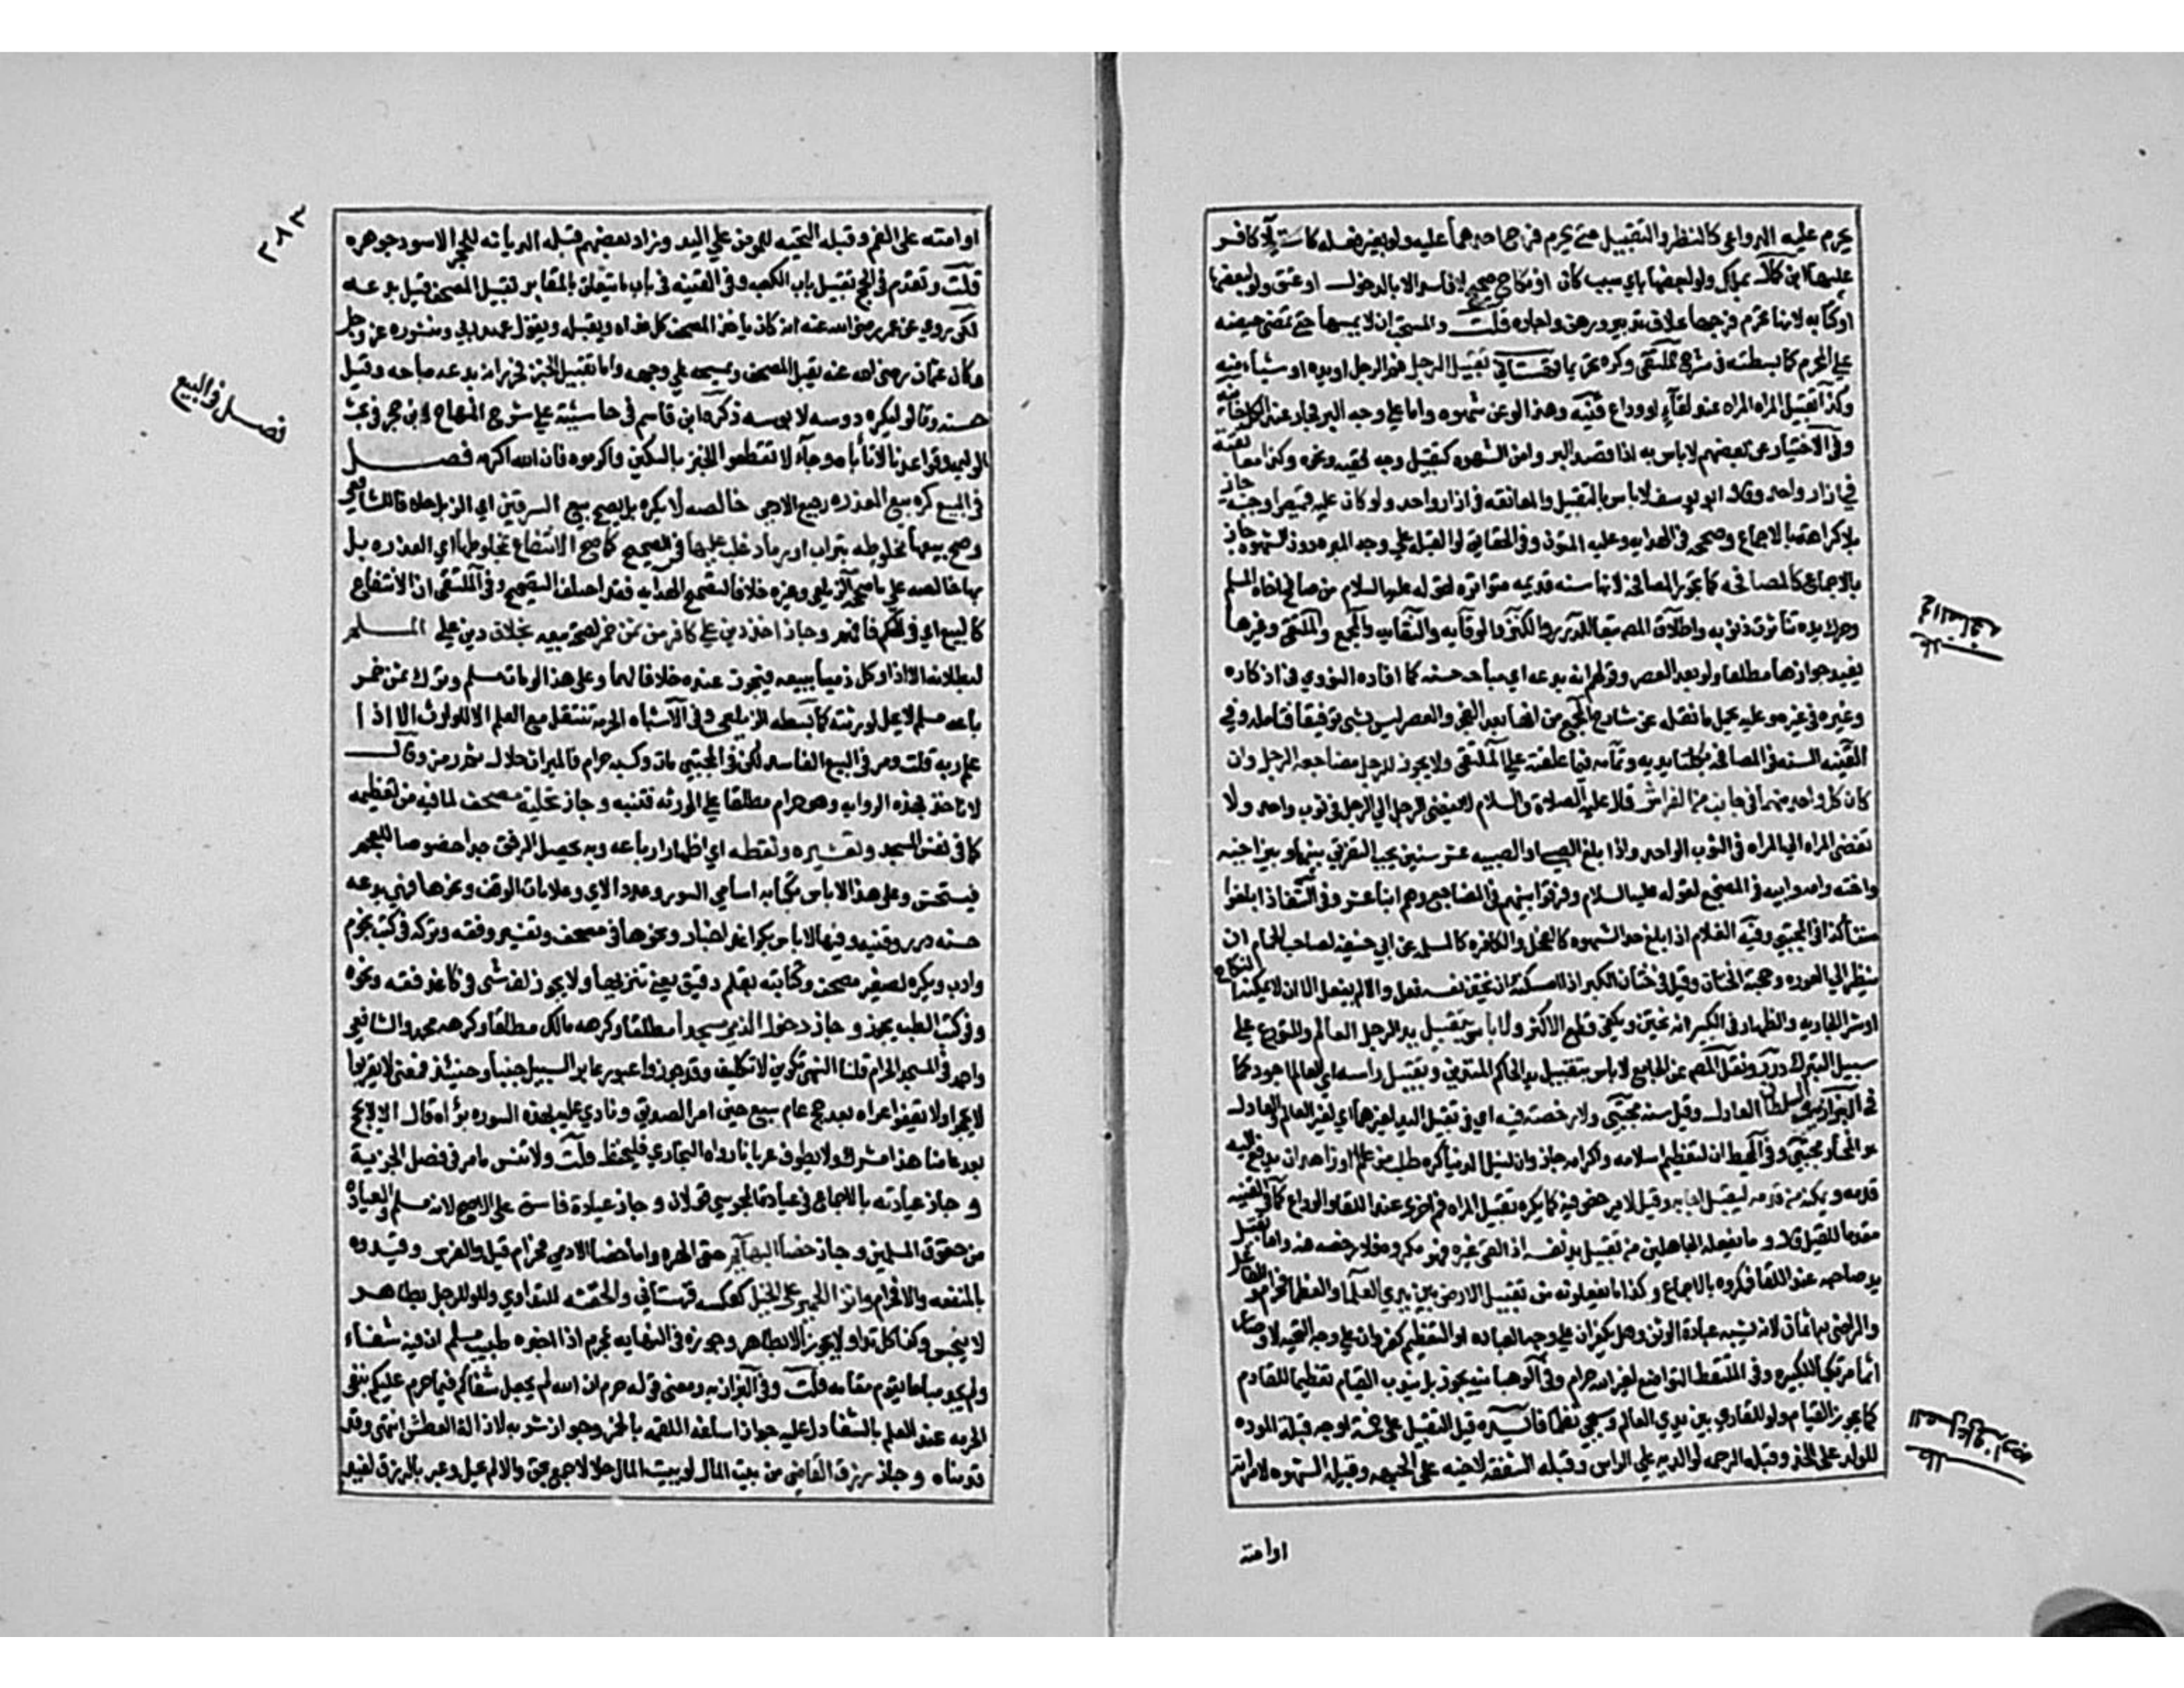 يحرم عليه الدواعي كالنظر والتقبيل حتى يحرم فرج احداهما عليه ولو بغير فعله كاستيلاء كافر
عليها ابن كمال بملك ولو لبعضها باي سبب كان او نكاح صحيح لا فاسد الا بالدخول او عتق ولو لبعضها
او كتابه لانها تحرم فرجها بخلاف تدبير ورهن واجاره قلت والمستحب ان لا يمسها حتى تمضي حيضه
على المحرم كما بسطته في شرح الملتقى وكره تحريما قهستاني تقبيل الرجل فم الرجل او يده او شيأ منه
وكذا تقبيل المراه المراه عند لقاء او وداع قنيه وهذا لو عن شهوه واما على وجه البر فجاز عند الكل خانيه
وفي الاختيار عن بعضهم لاباس به اذا قصد البر وامن الشهوه كتقبيل وجه فقيه ونحوه وكذا معانقته
في ازار واحد وقال ابو يوسف لاباس بالتقبيل والمعانقه في ازار واحد ولو كان عليه قميص او جبه جاز
بلا كراهة بالاجماع وصححه في الهدايه وعليه المتون وفي الحقايق لو القبله على وجه المبره دون الشهوه جاز
بالاجماع كالمصافحه كما تجوز المصافحه لانها سنه قديمه متواتره لقوله عليه السلام من صافح اخاه المسلم
وحرك يده تناثرت ذنوبه واطلاق المصـ تبعا للدرر والكنز والوقايه والنقايه والمجمع والملتقى وغيرها
يفيد جوازها مطلقا ولو بعد العصر وقولهم انه بدعه اي مباحه حسنه كما افاده النووي في اذكاره
وغيره في غيره وعليه يحمل ما نقله عن شارح المجمع من انها بعد الفجر والعصر ليس بشي توفيقا فتامله وفي
القنيه السنه في المصافحه بكلتا يديه وتمامه فيما علقته على الملتقى ولا يجوز للرجل مضاجعه الرجل وان
كان كل واحد منهما في جانب من الفراش قال عليه الصلاة والسلام لا يفضي الرجل الى الرجل في ثوب واحد ولا
تفضي المراه الى المراه في الثوب الواحد واذا بلغ الصبي او الصبيه عشر سنين يجب التفريق بينهما وبين اخيه
واخته وامه وابيه في المضجع لقوله عليه السلام وفرقوا بينهم في المضاجع وهم ابنا عشر وفي النتف اذا بلغوا
ستا كذا في المجتبى وفيه الغلام اذا بلغ حد الشهوه كالفحل والكافره كالمسلمه عن ابي حنيفه لصاحب الحمام ان
ينظر الى العوره وحجته الختان وقيل في ختان الكبير اذا امكنه ان يختن نفسه فعل والا لم يفعل الا ان لا يمكنه النكاح
او شرا الجاريه والظاهر في الكبير انه يختن ويكفي قطع الاكثر ولا باس بتقبيل يد الرجل العالم والمتورع على
سبيل التبرك درر ونقل المصـ عن الجامع لا باس بتقبيل يد الحاكم المتدين وتقبيل راسه اي العالم اجود كما
في البزازيه والسلطان العادل وقيل سنه مجتبى ولا رخصة فيه اي في تقبيل اليد لغيرهما اي لغير العالم والعادل
هو المختار مجتبى وفي المحيط ان لتعظيم اسلامه واكرامه جاز وان لنيل الدنيا كره طلب من عالم او زاهد ان يدفع اليه
قدمه ويمكنه من قدمه ليقبله اجابه وقيل لا يرخص فيه كما يكره تقبيل المراه فم اخرى عند اللقا او الوداع كما في القنيه
مقدما للقيل قال وما يفعله الجاهلين من تقبيل يد نفسه اذا لقي غيره فهو مكروه فلا رخصه فيه واما تقبيل
يد صاحبه عند اللقا فمكروه بالاجماع وكذا ما يفعلونه من تقبيل الارض بين يدي العلما والعظما فحرام والفاعل
والراضي به اثمان لانه يشبه عبادة الوثن وهل يكفران على وجه العباده او التعظيم كفر وان على وجه التحيه لا وصار
اثما مرتكبا للكبيره وفي الملتقط التواضع لغير الله حرام وفي الوهبانيه يجوز بل يندب القيام تعظيما للقادم
كما يجوز القيام ولو للقاري بين يدي العالم وسيجي نظما فايده قيل التقبيل على خمسة اوجه قبلة الموده
للولد على الخد وقبله الرحمه لوالديه على الراس وقبله الشفقه لاخيه على الجبهه وقبله الشهوه لامراته
اوامته
جواز المصافحه
مطلب
مطلب
٢٨٣
اوامته على الفم وقبله التحيه للمومنين على اليد وزاد بعضهم قبله الديانه للحجر الاسود جوهره
قلت وتقدم في الحج تقبيل باب الكعبه وفي القنيه في باب ما يتعلق بالمقابر تقبيل المصحف قيل بدعه
لكن روي عن عمر رضي الله عنه انه كان ياخذ المصحف كل غداه ويقبله ويقول عهد ربي ومنشوره عز وجل
وكان عثمان رضي الله عنه يقبل المصحف ويمسحه على وجهه واما تقبيل الخبز فحرر انه بدعه مباحه وقيل
حسنه وقالوا يكره دوسه لا بوسه ذكره ابن قاسم في حاشيته على شرح المنهاج لابن حجر في بحث
الوليمه وقواعدنا لا تأباه وجاء لا تقطعوا الخبز بالسكين واكرموه فان الله اكرمه فصل
في البيع كره بيع العذره رجيع الادمي خالصه لا يكره بل يصح بيع السرقين اي الزبل خلافا للشافعي
وصح بيعها مخلوطه بتراب او رماد غلب عليها في الصحيح كما صح الانتفاع بمخلوطها اي العذره بل
بها خالصه على ما صححه الزيلعي وغيره خلافا لتصحيح الهدايه فقد اختلف التصحيح وفي الملتقى ان الانتفاع
كالبيع اي في الحكم فافهم وجاز اخذ دين على كافر من ثمن خمر لصحة بيعه بخلاف دين على المسلم
لبطلانه الا اذا وكل ذميا ببيعه فيجوز عنده خلافا لهما وعلى هذا لو مات مسلم وترك ثمن خمر
باعه مسلم لا يحل لورثته كما بسطه الزيلعي وفي الاشباه الحرمه تنتقل مع العلم الا للوارث الا اذا
علم ربه قلت ومر في البيع الفاسد لكن في المجتبى مات وكسبه حرام فالميراث حلال ثم رمز وقال
لا ناخذ بهذه الروايه وهو حرام مطلقا على الورثه فتنبه وجاز تحلية مصحف لما فيه من تعظيمه
كما في نقش المسجد وتعشيره ونقطه اي اظهار اعرابه وبه يحصل الرفق جدا خصوصا للعجم
فيستحسن وعلى هذا لا باس بكتابه اسامي السور وعدد الاي وعلامات الوقف ونحوها فهي بدعه
حسنه درر وقنيه وفيها لا باس بكواغد اخبار ونحوها في مصحف وتفسير وفقه وتركه في كتب نجوم
وادب ويكره تصغير مصحف وكتابته بقلم دقيق يعني تنزيها ولا يجوز لف شي في كاغد فقه ونحوه
وفي كتب الطب يجوز وجاز دخول الذمي مسجدا مطلقا وكرهه مالك مطلقا وكرهه محمد والشافعي
واحمد في المسجد الحرام قلنا النهي تكويني لا تكليفي وقد جوزوا عبور عابر السبيل جنبا وحينئذ فمعنى لا يقربوا
لا يحجوا ولا يعتمروا عراه بعد حج عام تسع حين امر الصديق ونادى علي بهذه السوره براه قال الا لا يحج
بعد عامنا هذا مشرك ولا يطوف عريانا رواه البخاري فليحفظ قلت ولا تنس ما مر في فصل الجزية
و جاز عيادته بالاجماع وفي عيادة المجوسي قولان و جاز عيادة فاسق على الاصح لانه مسلم والعيادة
من حقوق المسلمين و جاز خصا البهايم حتى الهره واما خصا الادمي فحرام قيل والفرس وقيدوه
بالمنفعه والا فحرام وانزا الحمير على الخيل كعكسه قهستاني والحقنه للتداوي ولو للرجل بطاهر
لا بنجس وكذا كل تداو لا يجوز الا بطاهر وجوزه في النهايه بمحرم اذا اخبره طبيب مسلم ان فيه شفاء
ولم يجد مباحا يقوم مقامه قلت وفي البزازيه ومعنى قوله حرم ان الله لم يجعل شفاكم فيما حرم عليكم نفي
الحرمه عند العلم بالشفا دل عليه جواز اساغه اللقمه بالخمر وجواز شربه لازالة العطش انتهى وقد
قدمناه و جاز رزق القاضي من بيت المال لو بيت المال حلالا جمع بحق والا لم يحل وعبر بالرزق ليفيد
فصل في البيع